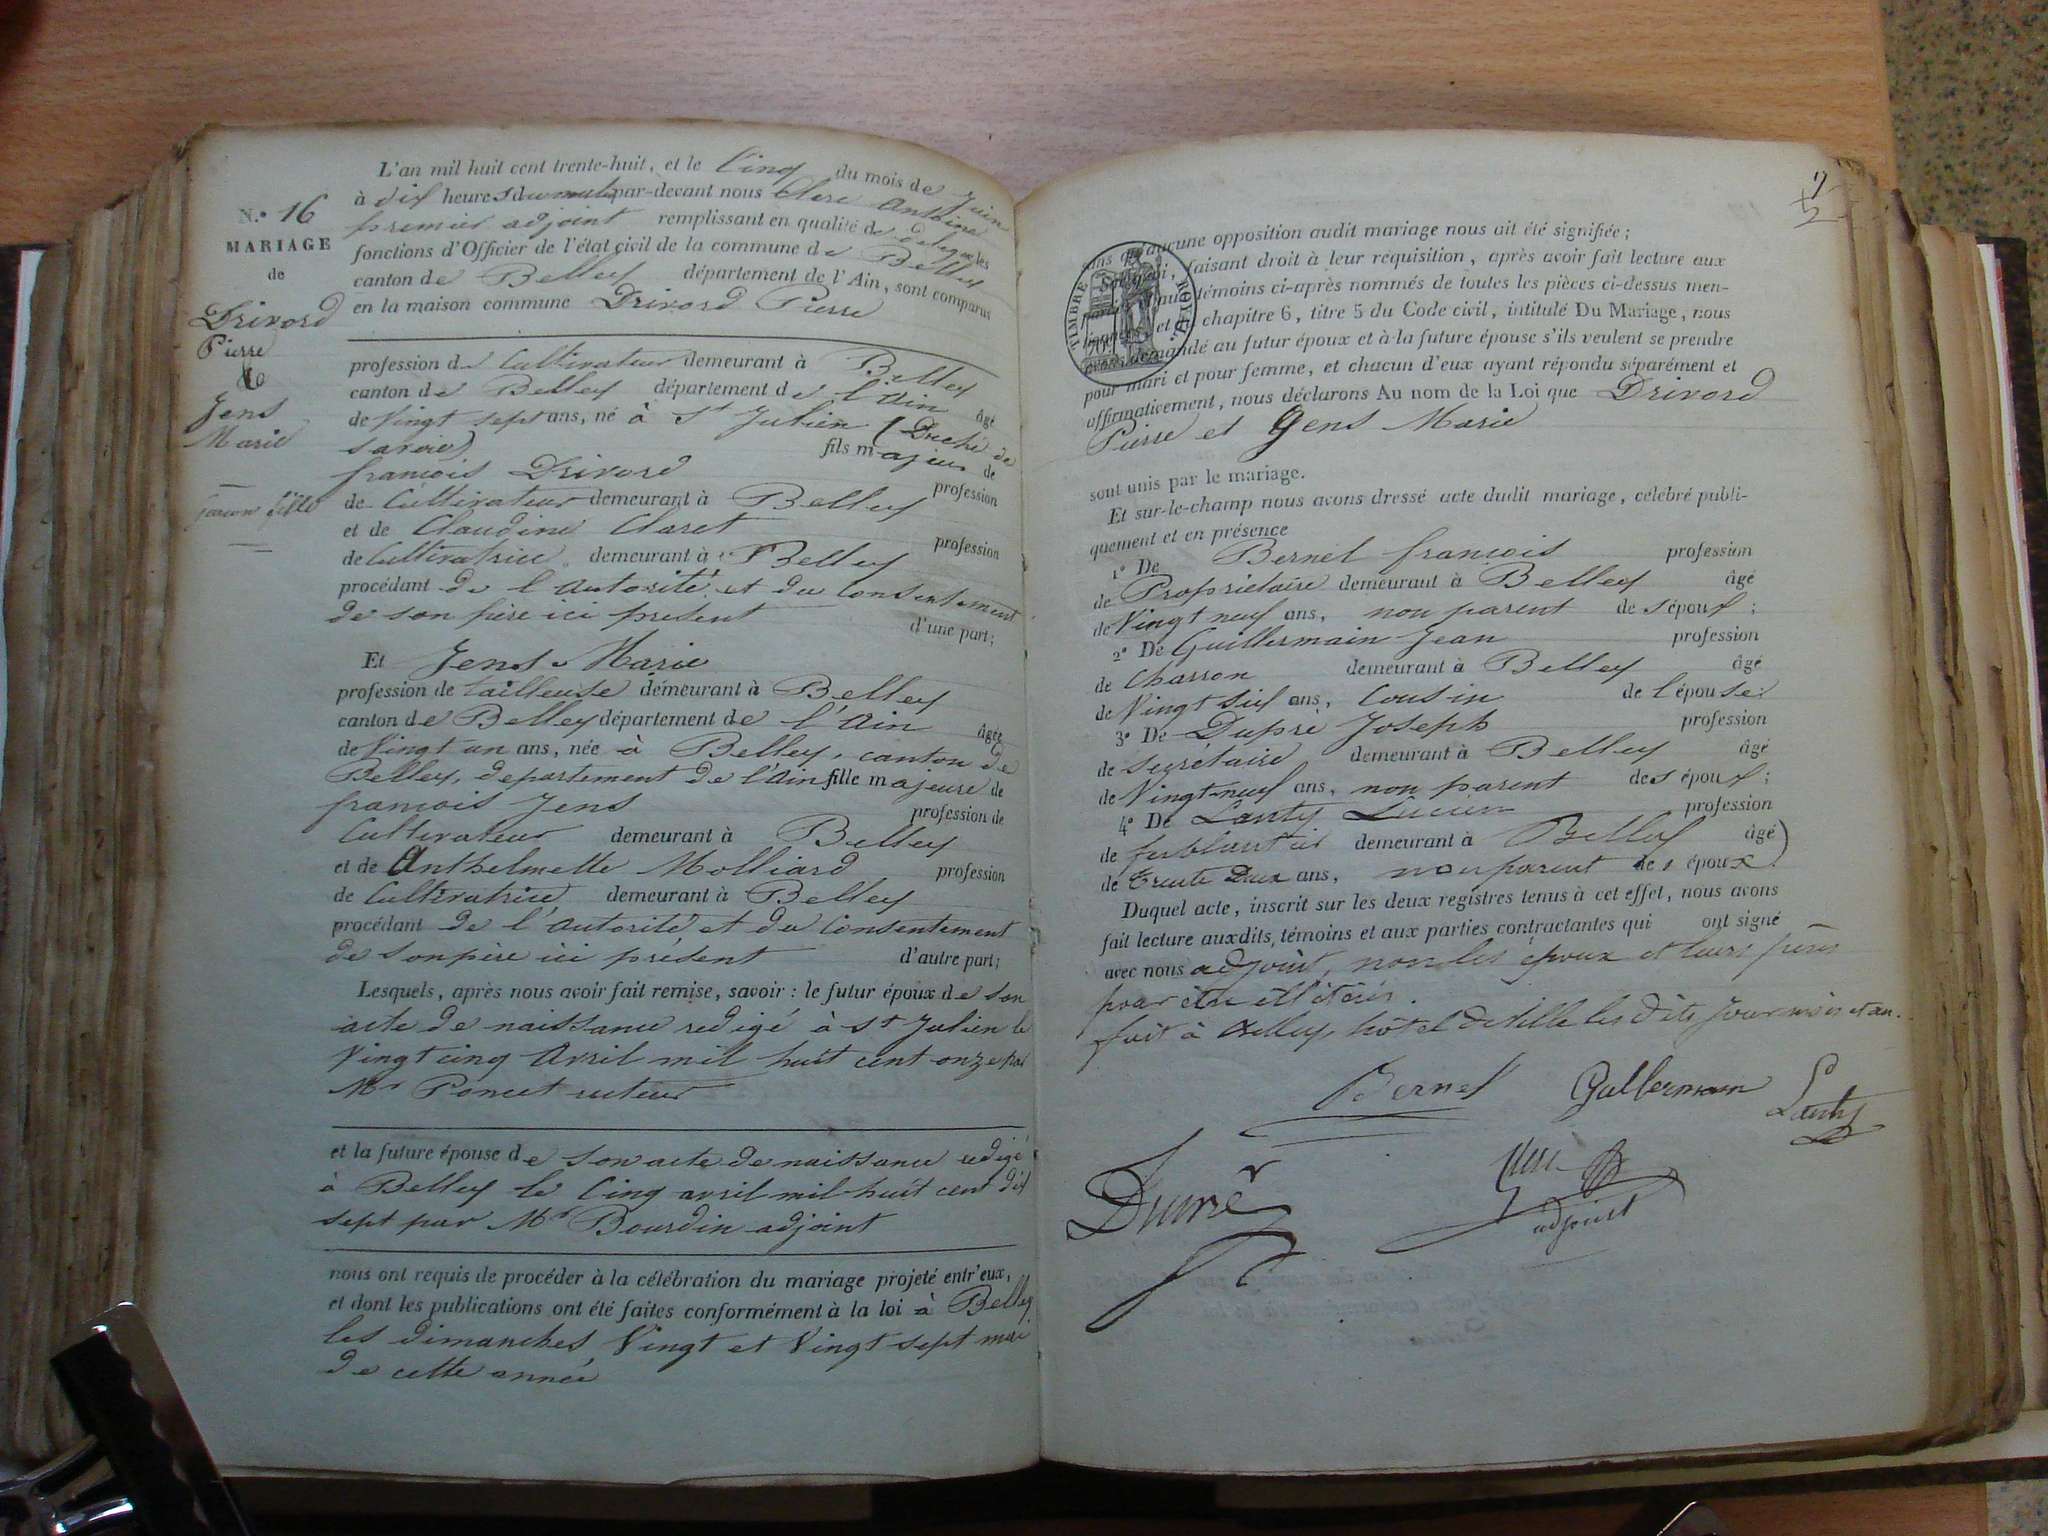 L'an mil huit cent trente-huit, et le Cinq du mois de Juin
à dix heures du matin par-devant nous Clerc Antoine
premier adjoint remplissant en qualité de delegué les
fonctions d'Officier de l'état civil de la commune de Belley
canton de Belley département de l'Ain, sont comparus
en la maison commune Drivord Pierre
N.° 16
MARIAGE
de
Drivord
Pierre
&
Jens
Marie
garçon fille
profession de Cultivateur demeurant à Belley
canton de Belley département de l'Ain âgé
de Vingt sept ans, né à St Julien (Duché de
savoie) fils majeur de
françois Drivord profession
de Cultivateur demeurant à Belley
et de Claudine Claret profession
de Cultivatrice demeurant à Belley
procédant de l'autorité et du Consentement
de son père ici présent d'une part;
Et Jens Marie
profession de tailleuse demeurant à Belley
canton de Belley département de l'Ain âgée
de Vingt un ans, née à Belley, canton de
Belley, departement de l'Ain fille majeure de
françois Jens profession de
Cultivateur demeurant à Belley
et de Anthelmette Molliard profession
de Cultivatrice demeurant à Belley
procédant de l'autorité et du Consentement
de son père ici présent d'autre part;
Lesquels, après nous avoir fait remise, savoir : le futur époux de son
acte de naissance redigé à St Julien le
Vingt cinq Avril mil huit cent onze par
Mr Poncet recteur
et la future épouse de son acte de naissance redigé
à Belley le Cinq avril mil huit cent dix
sept par Mr Bourdin adjoint
nous ont requis de procéder à la célébration du mariage projeté entr'eux,
et dont les publications ont été faites conformément à la loi à Belley
les dimanches Vingt et Vingt sept mai
de cette année
7
2
TIMBRE ROYAL
sans qu'aucune opposition audit mariage nous ait été signifiée;
faisant droit à leur réquisition, après avoir fait lecture aux
témoins ci-après nommés de toutes les pièces ci-dessus men-
et chapitre 6, titre 5 du Code civil, intitulé Du Mariage, nous
avons demandé au futur époux et à la future épouse s'ils veulent se prendre
pour mari et pour femme, et chacun d'eux ayant répondu séparément et
affirmativement, nous déclarons Au nom de la Loi que Drivord
Pierre et Gens Marie
sont unis par le mariage.
Et sur-le-champ nous avons dressé acte dudit mariage, célébré publi-
quement et en présence
1° De Bernel françois profession
de Propriétaire demeurant à Belley âgé
de Vingt neuf ans, non parent des époux;
2° De Guillermain Jean profession
de Charron demeurant à Belley âgé
de Vingt six ans, Cousin de l'épouse;
3° De Dupré Joseph profession
de secrétaire demeurant à Belley âgé
de Vingt-neuf ans, non parent des époux;
4° De Lanty Lucien profession
de ferblantier demeurant à Belley âgé
de trente deux ans, non parent des époux
Duquel acte, inscrit sur les deux registres tenus à cet effet, nous avons
fait lecture auxdits témoins et aux parties contractantes qui ont signé
avec nous adjoint, non les époux et leurs pères
pour être illétérés.
fait à Belley, hôtel de Ville les dits jour mois et an.
Bernel Gullermain Lanty
Dupré Clerc
adjoint